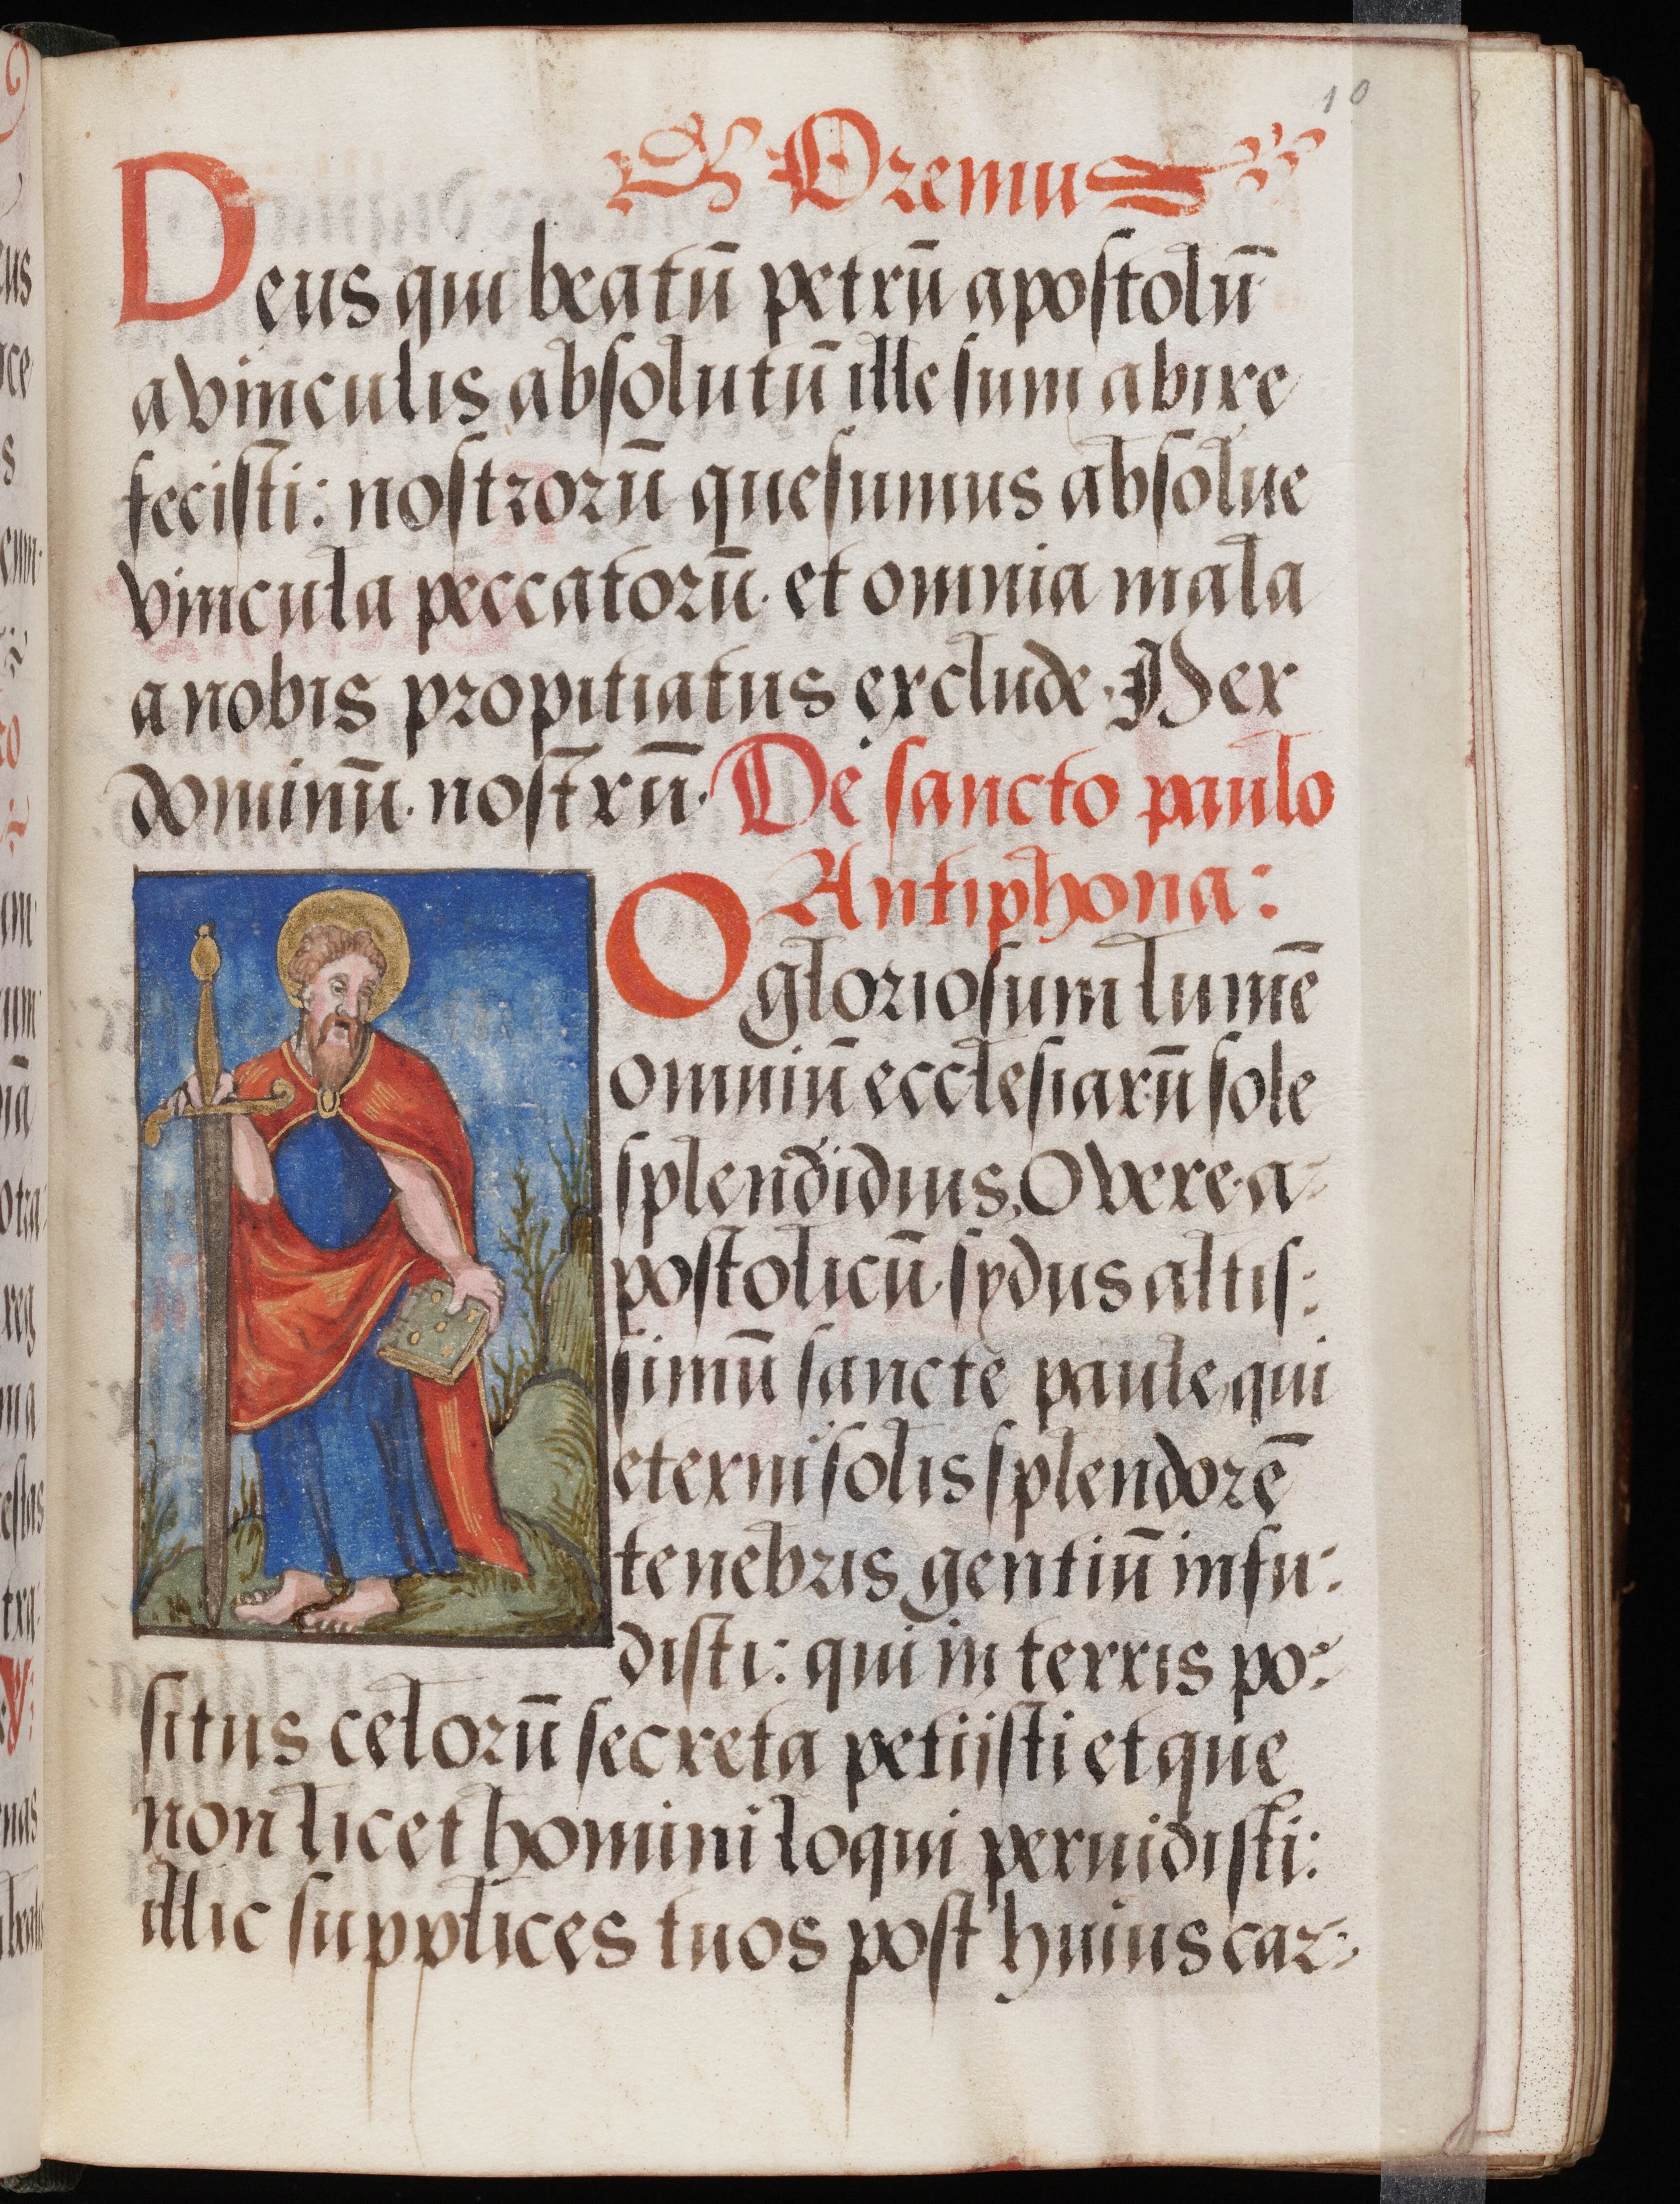 10
Oremus
Deus qui beatū petrū apostolū
a vinculis absolutū illesum abire
fecisti: nostrorū quesumus absolue
vincula peccatorū. et omnia mala
a nobis propitiatus exclude. Per
dominū. nostrū. De sancto paulo
Antiphona:
O gloriosum lumē
omniū ecclesiarū sole
splendidius, O vere a-
postolicū. sydus altis:
simū sancte paule, qui
eterni solis splendorē
tenebris gentiū infu:
disti: qui in terris po:
situs celorū secreta petijsti et que
non licet homini loqui peruidisti:
illic supplices tuos post huius car-